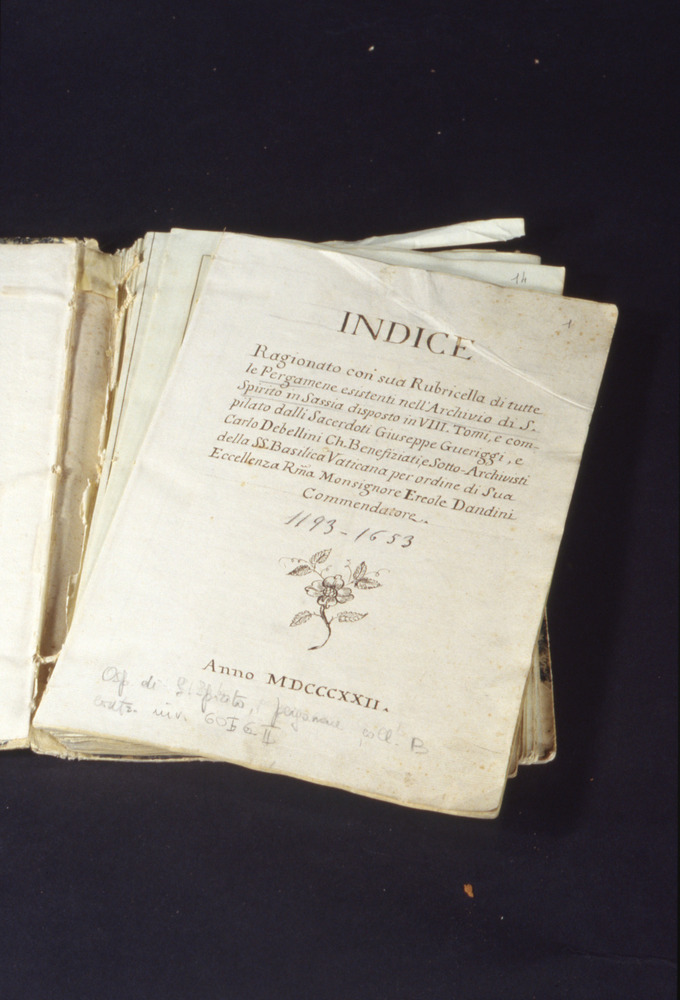 14
1
INDICE
Ragionato con sua Rubricella di tutte
le Pergamene esistenti nell'Archivio di S.
Spirito in Sassia disposto in VIII. Tomi, e com-
pilato dalli Sacerdoti Giuseppe Gueriggi, e
Carlo Debellini Ch. Benefiziati, e Sotto-Archivisti
della SS. Basilica Vaticana per ordine di Sua
Eccellenza Rm̃a Monsignore Ercole Dandini
Commendatore.
1193-1653
Anno MDCCCXXII.
Osp. di S. Spirito, pergamene, coll. B
inv. 60